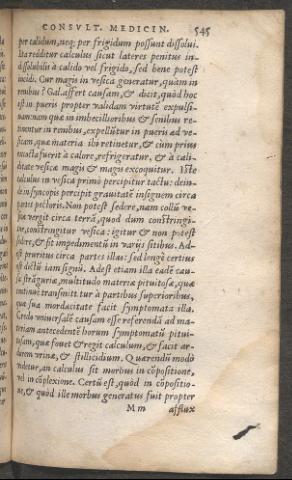 CONSVLT. MEDICIN. 545
per calidum, neq; per frigidum possunt dissolui.
Ita redditur calculus sicut lateres penitus in-
dissolubilis à calido vel frigido, sed bene potest
incidi. Cur magis in vesica generatur, quàm in
renibus? Gal. affert causam, & dicit, quòd hoc
est in pueris propter validam virtutē expulsi-
uam: nam quæ in imbecillioribus & senibus re-
tinentur in renibus, expellūtur in pueris ad ve-
sicam, quæ materia ibi retinetur, & cùm prius
excocta fuerit à calore, refrigeratur, & à cali-
ditate vesicæ magis & magis excoquitur. Iste
calculus in vesica primò percipitur tactu: dein-
de in syncopis percipit grauitatē insignem circa
partes pectoris. Non potest sedere, nam collū ve-
sicæ vergit circa terrā, quod dum constringi-
tur, constringitur vesica: igitur & non potest
sedere, & fit impedimentū in varijs sitibus. Ad-
est pruritus circa partes illas: sed longè certius
est dictū iam signū. Adest etiam illa eadē cau-
sa strāguriæ, multitudo materiæ pituitosæ, quæ
continuè transmittitur à partibus superioribus,
quæ sua mordacitate facit symptomata illa.
Credo vniuersalē causam esse referendā ad ma-
teriam antecedentē horum symptomatū pitui-
tosam, quæ fouet & regit calculum, & facit ar-
dorem vrinæ, & stillicidium. Quærendū modò
videtur, an calculus sit morbus in cōpositione,
vel in cōplexione. Certū est, quòd in cōpositio-
ne, & quòd ille morbus generatus fuit propter
M m afflux